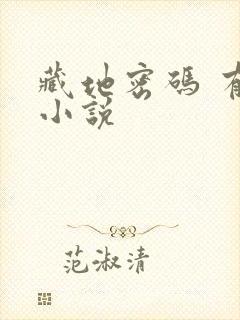 藏地密碼 有
小説
范淑清